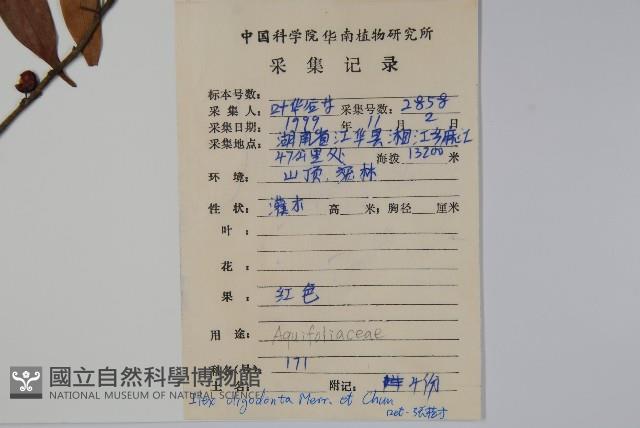 中国科学院华南植物研究所
采集记录
标本号数:
采集人: 叶华谷 采集号数: 2858
采集日期: 1999 年 11 月 2 日
采集地点: 湖南省江华县湘江乡
47公里处 海拨 1300 米
环境: 山顶, 密林
性状: 灌木 高 米; 胸径 厘米
叶:
花:
果: 红色
用途:
Aquifoliaceae
科名(号): 171
土名: 附记: 4份
Ilex oligodonta Merr. et Chun
Det.
國立自然科學博物館
NATIONAL MUSEUM OF NATURAL SCIENCE